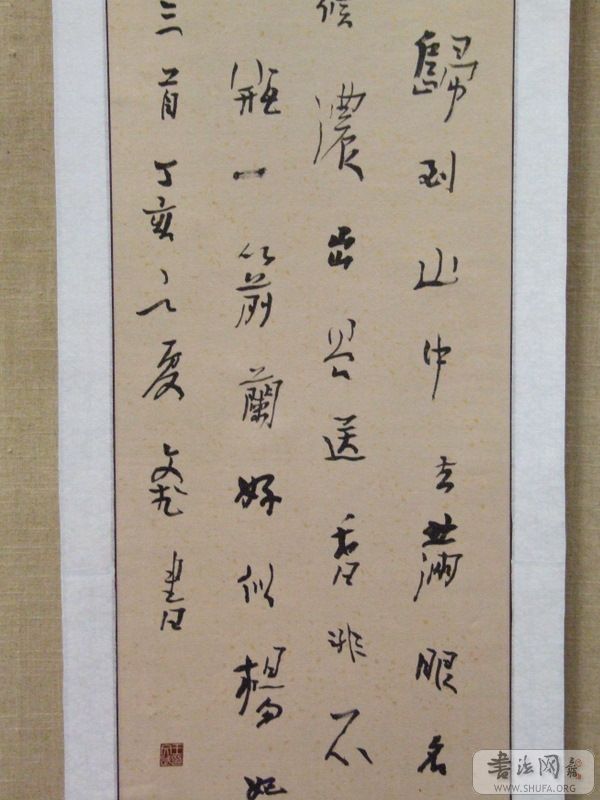 歸到山中去滿眼名
候濃出谷送香非不
一箭蘭好似楊妃
三首丁亥之夏書
書法网
WWW.SHUFA.ORG